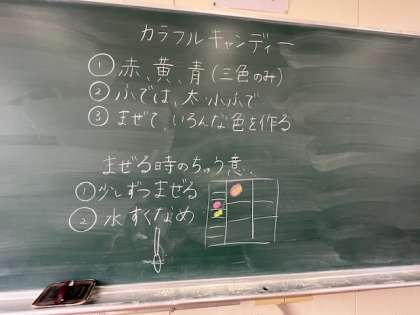 カラフルキャンディー
① 赤、黄、青(三色のみ)
② ふでは、太小ふで
③ まぜて、いろんな色を作る
まぜる時のちゅう意..
① 少しずつまぜる
② 水すくなめ